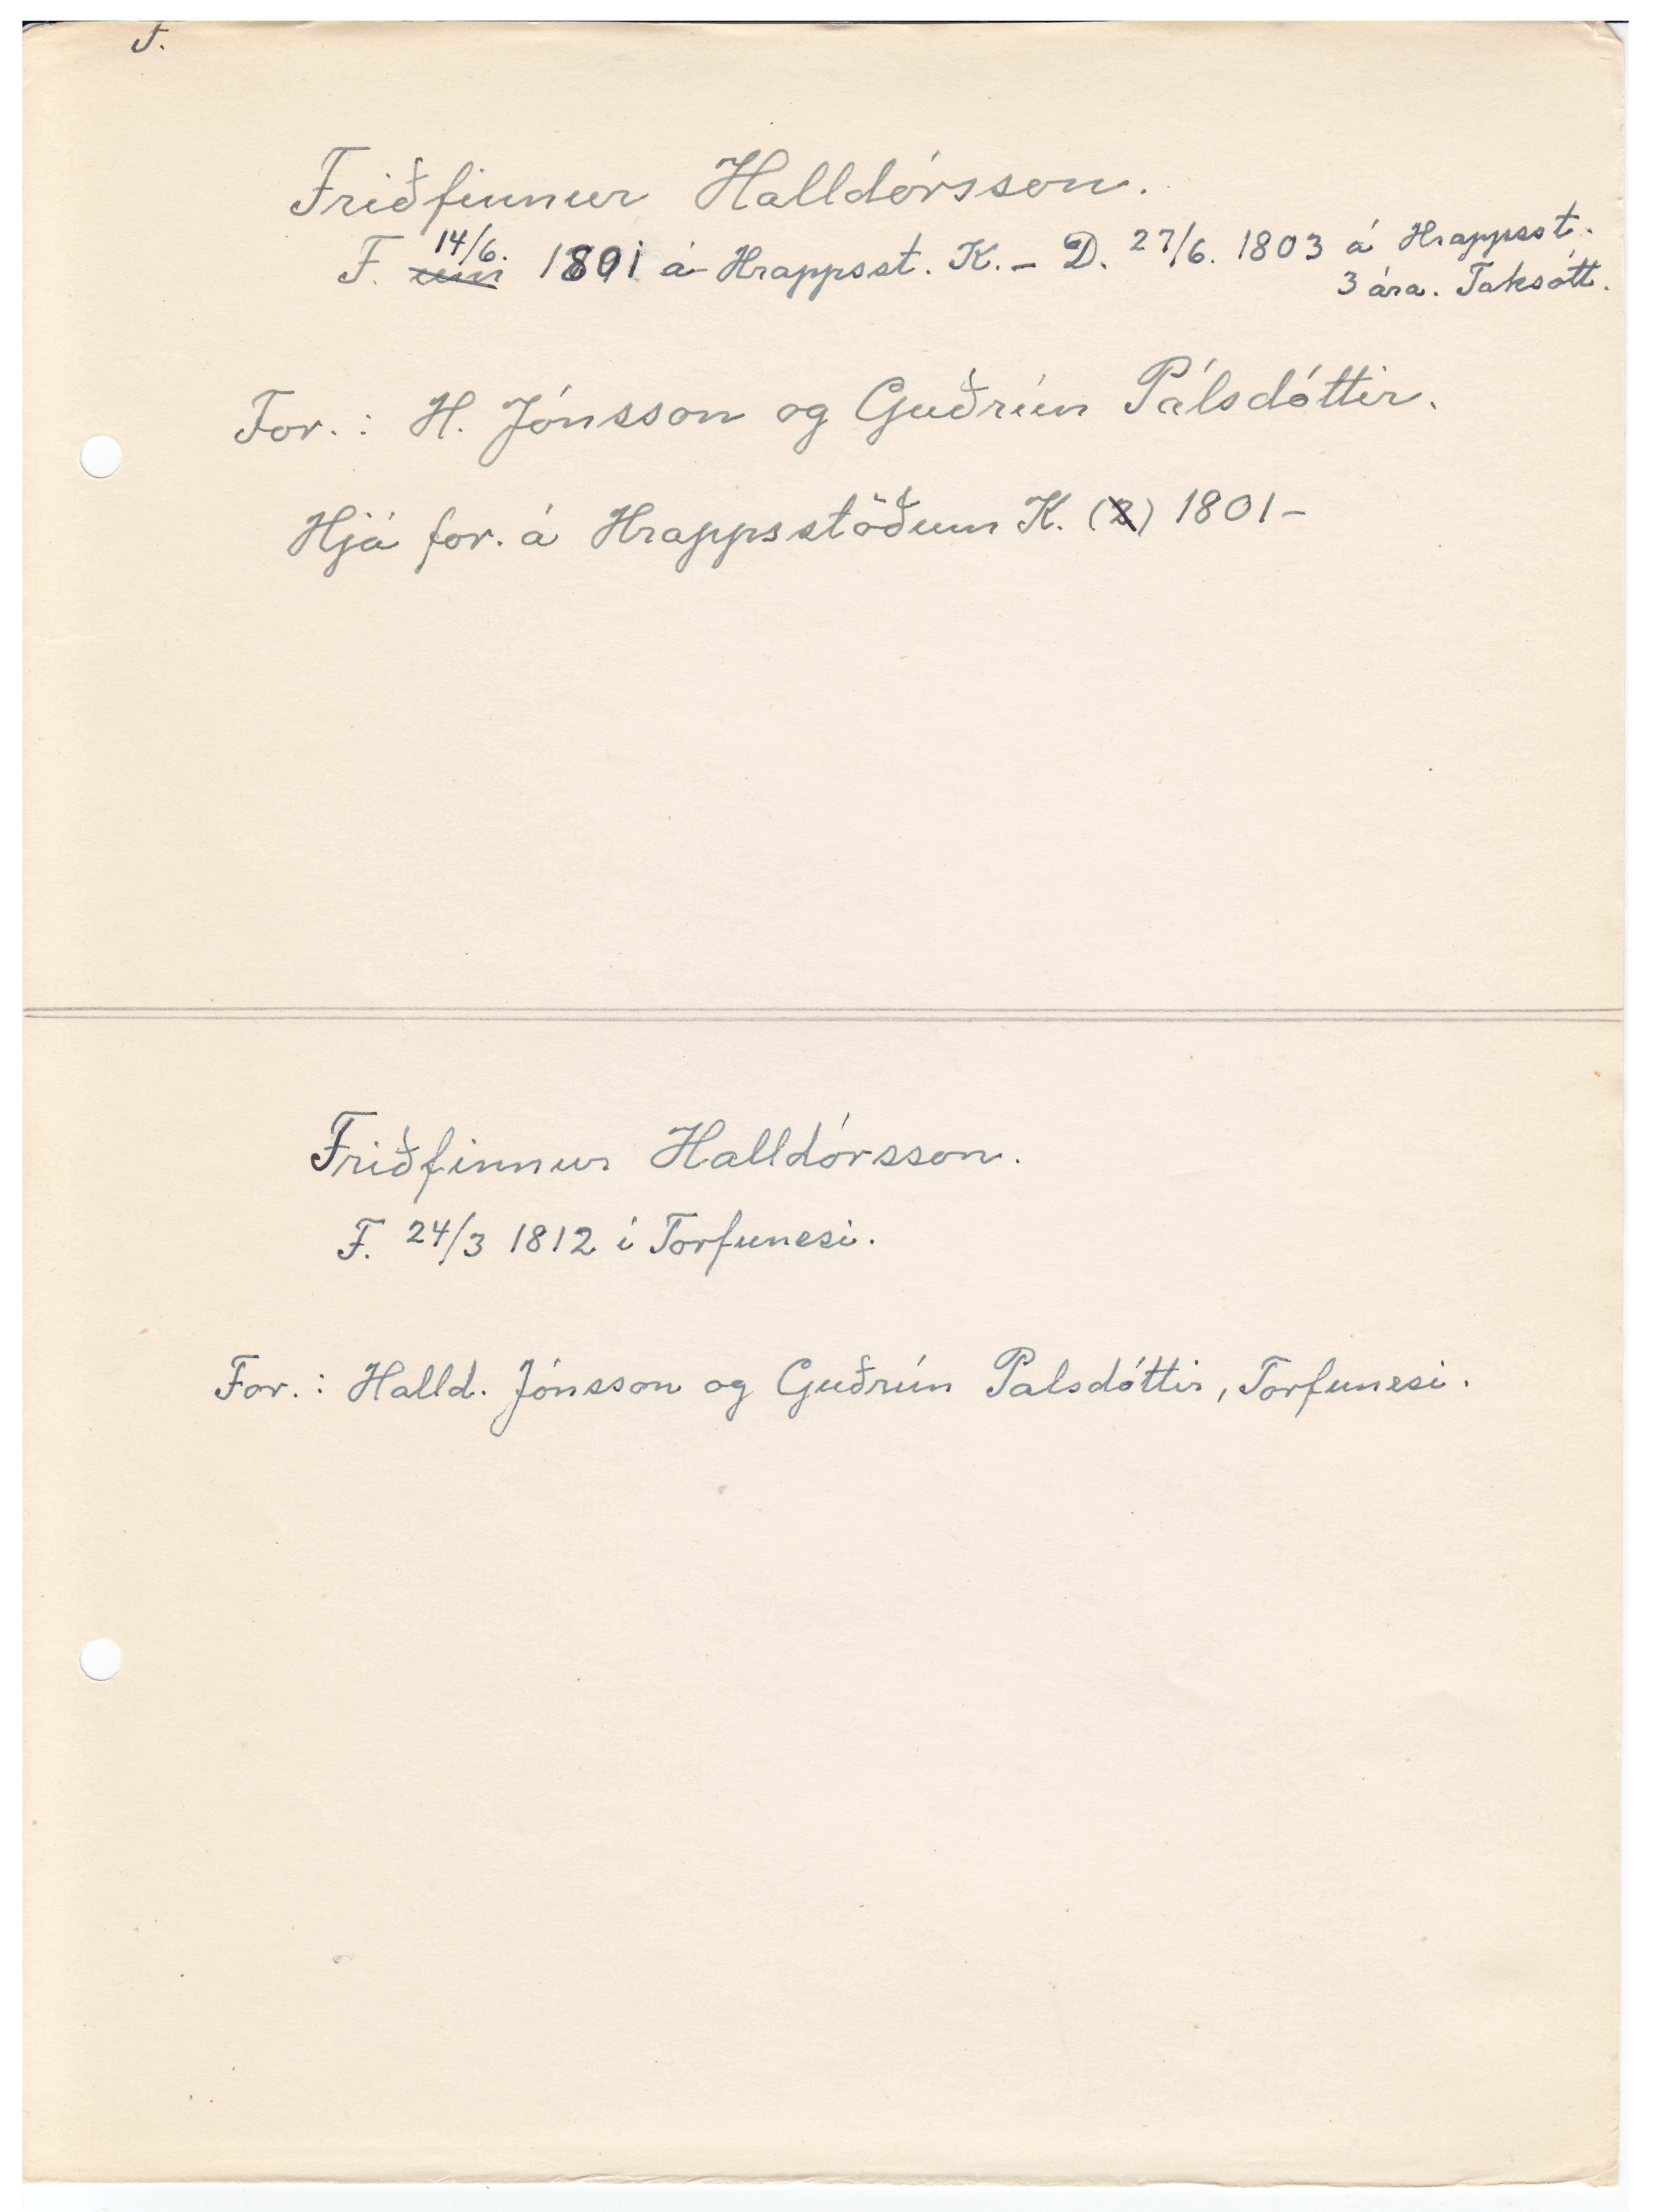 F.
Friðfinnur Halldórsson.
F. um 14/6. 1801 á Hrappsst. K. – D. 27/6. 1803 á Hrappsst.
3 ára. Taksótt.
For.: H. Jónsson og Guðrún Pálsdóttir.
Hjá for. á Hrappsstöðum K. (2) 1801–
Friðfinnur Halldórsson.
F. 24/3 1812 í Torfunesi.
For.: Halld. Jónsson og Guðrún Palsdóttir, Torfunesi.